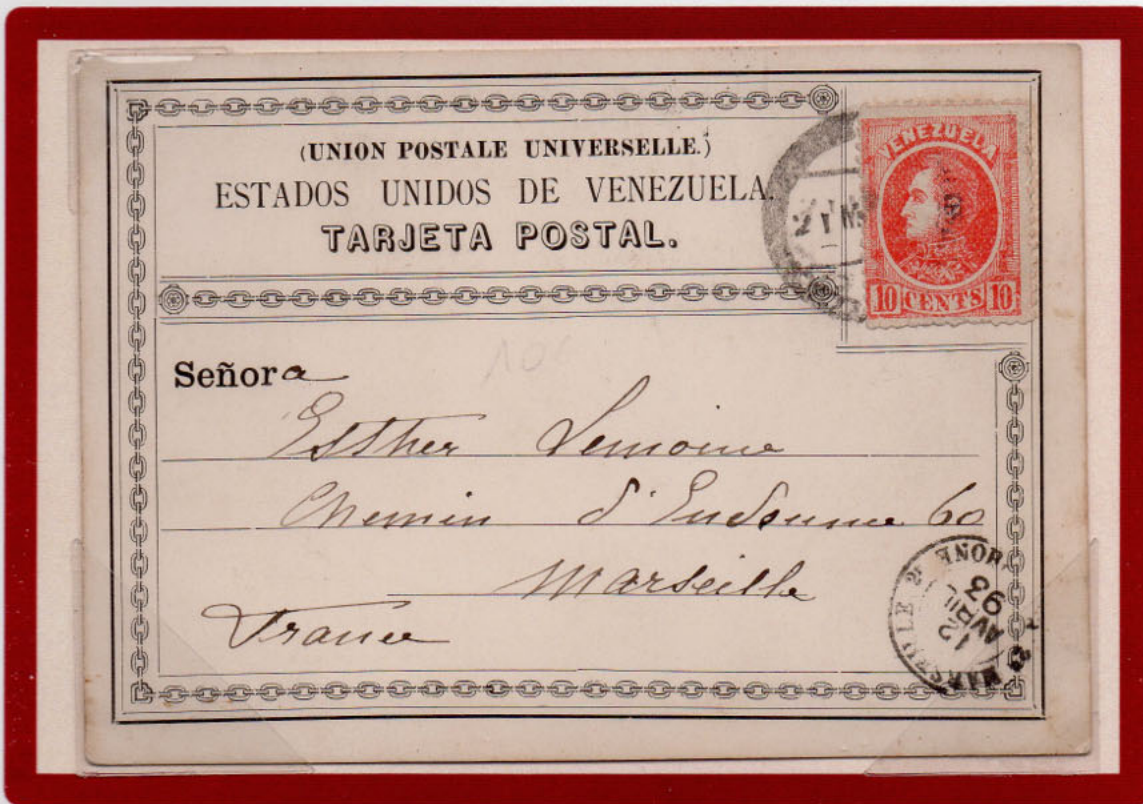 (UNION POSTALE UNIVERSELLE.)
ESTADOS UNIDOS DE VENEZUELA.
TARJETA POSTAL.
VENEZUELA
10 CENTS 10
10
Señora
Esther Lemoine
Chemin d'Endoume 60
Marseille
France
MARSEILLE
12
AVRIL
93